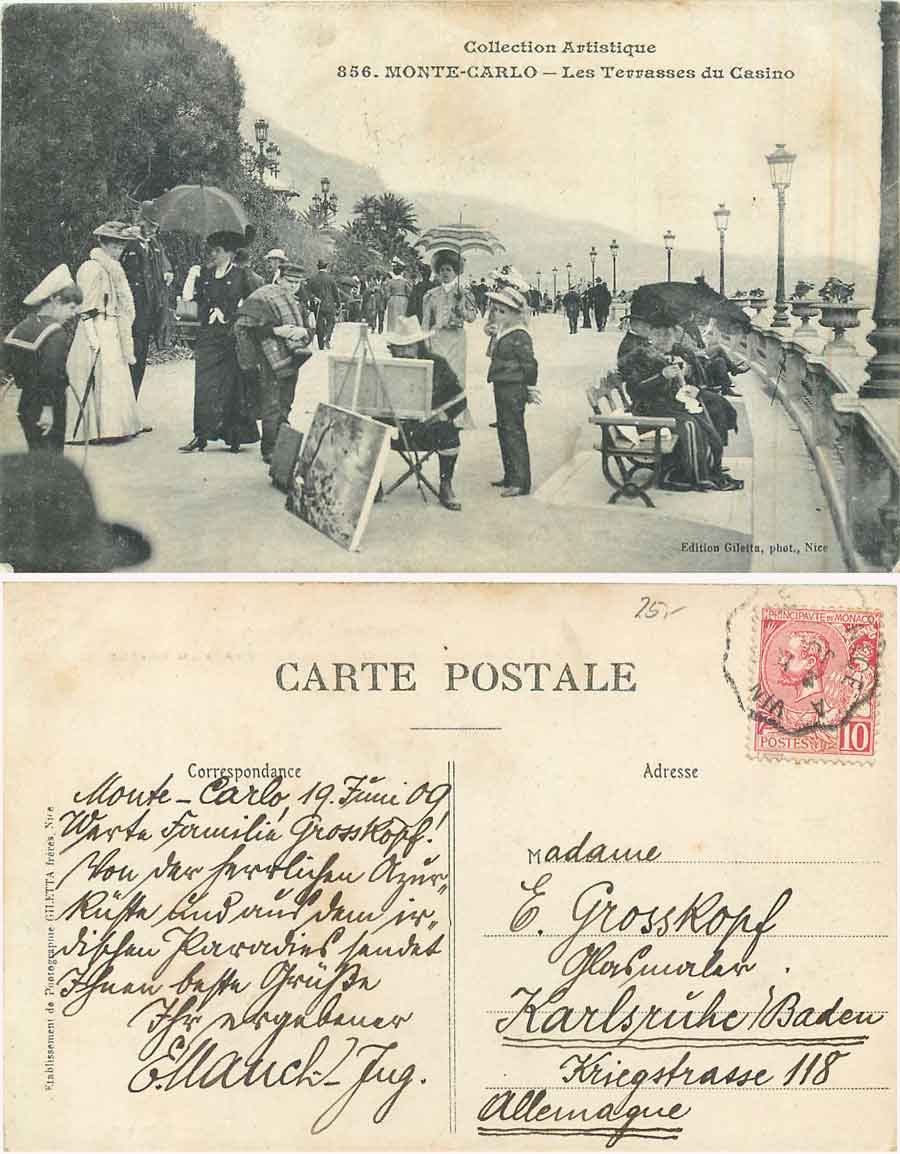 Collection Artistique
856. MONTE-CARLO – Les Terrasses du Casino
Edition Giletta, phot., Nice
25,-
CARTE POSTALE
PRINCIPAUTÉ DE MONACO
POSTES 10
VIN
Correspondance
Monte-Carlo, 19. Juni 09,
Werte Familie Grosskopf!
Von der herrlichen Azur-
küste und aus dem ir-
dischen Paradies sendet
Ihnen beste Grüße
Ihr ergebener
E. Mauch. Ing.
Etablissement de Photographie GILETTA frères, Nice
Adresse
Madame
E. Grosskopf
Glasmaler.
Karlsruhe/Baden
Kriegstrasse 118
Allemagne